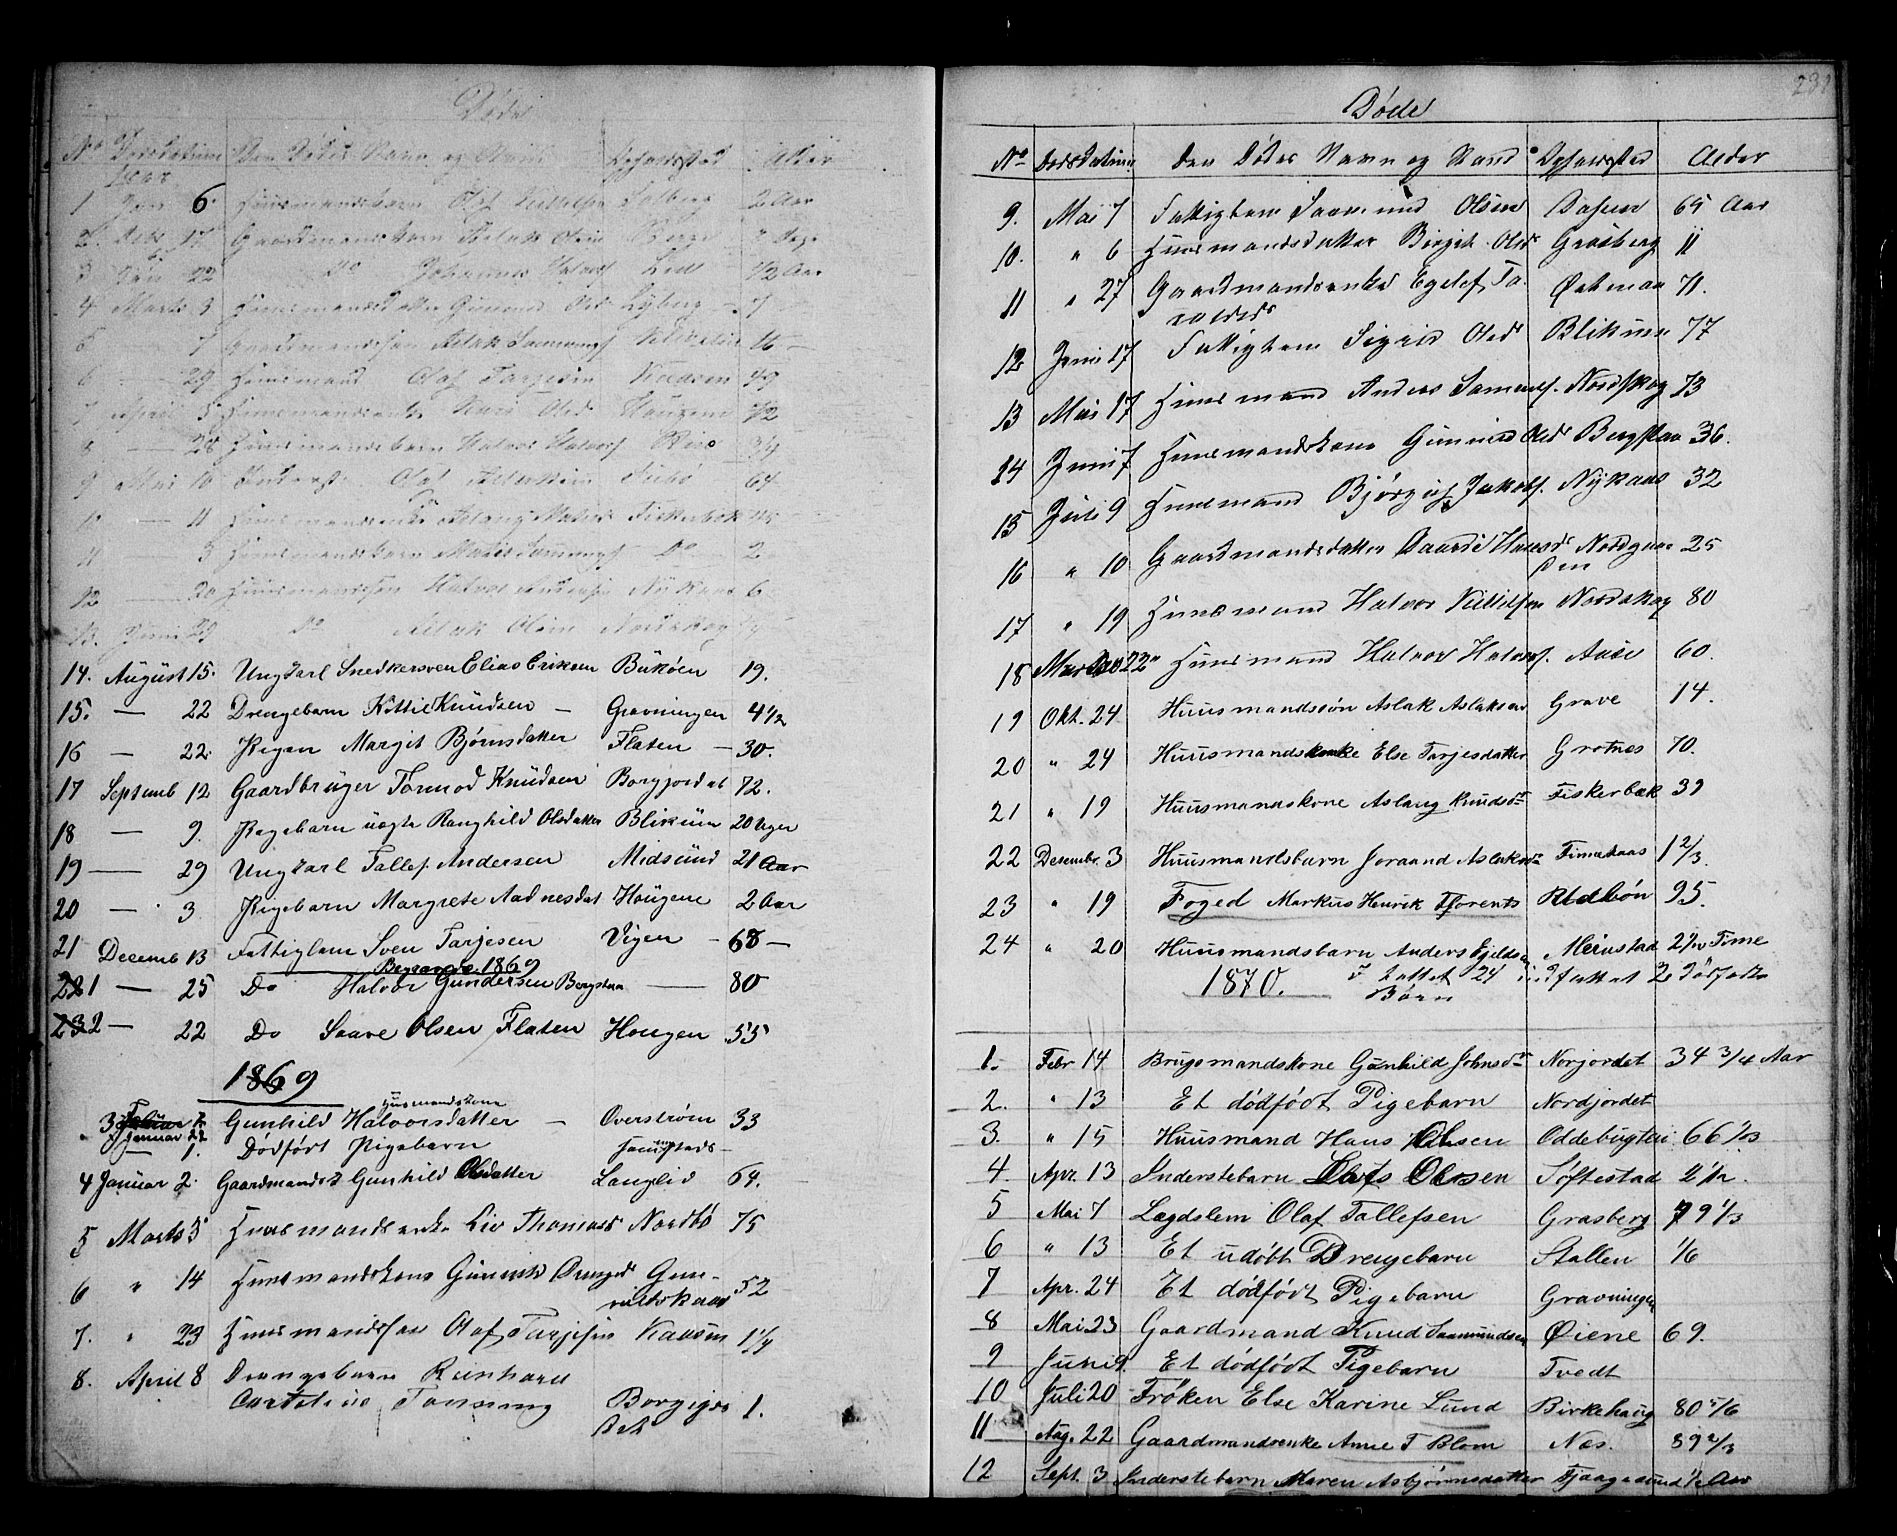 Døde
No Dødsdatum Den Dødes Navn og Stand Opholdsted Alder
1 Jan 6 Huusmandsbarn Olaf Kittilsen Solberg 2 Aar
2 Febr 17 Gaardmandsbarn Aslak Olsen Berge Dage
3 Jan 22 Do Johannes Halvors Lid 1/2 Aar
4 Marts 3 Huusmandsdatter Gunild Olsd Lyberg 7
5 7 Gaardmandssøn Aslak Saamunds 16 —
6 — 29 Huusmand Olaf Tarjesen Kaasen 49
7 April 5 Huusmandsenke Kari Olsd Haugen 72
8 — 28 Huusmandsbarn Halvor Halvors 3/4
9 Mai 10 Olaf Aslaksen 64
10 — 11 Huusmandsenke Aslaug Fiskerbæk 45
11 — 3 Huusmandsbarn Saamunds Do 2
12 — 20 Huusmandssøn Halvor Andersen Nykaas 6
13. Juni 29 Do Aslak Olsen Nordskog
14. August 15. Ungkarl Snedkersven Elias Eriksen Bukøen 19.
15. — 22 Drengebarn Kittil Knudsen — Gravningen 4 1/2
16 — 22. Pigen Margit Bjørnsdatter Flaten — 30.
17 Septemb 12 Gaardbruger Tormod Knudsen Borgjordet 72.
18 — 9. Pigebarn uægte Ranghild Olsdatter Blikum 20 Uger
19 — 29 Ungkarl Tallef Andersen Midsund 21 Aar
20 — 3 Pigebarn Margrete Aadnesdat Hougene 2 Aar
21 Decemb 13 Fattiglem Sven Tarjesen Vigen — 68 —
Begravede 1869
22 1 — 25 Do Halvor Gundersen Bergstaa — 80
23 2 — 22 Do Saave Olsen Flaten Hougen 55
1869
Huusmandskone
3 Januar 22 Gunhild Halvorsdatter — Overstrøm 33
— 1. Dødført Pigebarn —
4 Januar 2. Gaardmandsk Gunhild Olsdatter Langlid 64.
5 Marts 5 Huusmandsenke Liv Thomasd Nordbø 75
6 " 14 Huusmandskone Gunild Gun-
valdskaas 52
7. " 23 Huusmandssøn Olaf Tarjesen Kaasen 1 1/4
8. April 8 Drengebarn Reinhard
Tønning Borgejor
det 1.
231
Døde
No Dødsdatum Den Dødes Navn og Stand Opholdsted Alder
9. Mai 7 Fattiglem Saamund Olsen Aasen 65 Aar
10. " 6 Huusmandsdatter Birgit Olsd Grasberg 11
11 " 27 Gaardmandsenke Egelef Ta-
raldsd 71.
12 Juni 17 Fattiglem Sigrid Olsd Blikum 77
13 Mai 17 Huusmand Anders Samunds. Nordskog 73
14 Juni 7 Huusmandskone Gunild Olsd Bergstaa 36.
15 Juli 9 Huusmand Bjørguf Jakobs. Nykaas 32
16 " 10 Gaardmandsdatter Hansd Nordgaar
den 25
17 " 19 Huusmand Halvor Kittilsen Nordskog 80
18 22 Huusmand Halvor Halvors. Aase 60.
19 Okt. 24 Huusmandssøn Aslak Aslaksen Grave 14.
20 " 24 Huusmandsenke Else Tarjesdatter Grotnes 70.
21 " 19 Huusmandskone Aslaug Knudsdr Fiskerbæk 39
22 Desembr. 3 Huusmandsbarn Joraand Aslaksdr 1 2/3.
23 " 19 Foged Markus Henrik Florents 95.
24 " 20 Huusmandsbarn Anders Kjeldsen Meinstad 2 1/2 Time
1870. I tallet 24 i. I tallet 2 Dødfødte
Børn
1. Febr 14 Brugsmandskone Gunhild Johnsdr Norjordet 34 3/4 Aar
2. " 13 Et dødfødt Pigebarn Nordjordet
3. " 15 Huusmand Hans Olsen Oddebugten 66
4. Apr. 13 Inderstebarn Lars Olsen Søftestad 2 1/2.
5 Mai 7 Lægdslem Olaf Tallefsen Grasberg 79 1/3
6 " 13 Et udøbt Drengebarn Stallen 1/6
7 Apr. 24 Et dødfødt Pigebarn Gravningen
8 Mai 23 Gaardmand Knud Saamundsen Øiene 69.
9 Juni 9. Et dødfødt Pigebarn Tvedt
10 Juli 20 Frøken Else Karine Lund Birkehaug 80 5/6
11 Aug. 22 Gaardmandsenke Anne T Blom Næs. 89 2/3
12 Sept. 3 Inderstebarn Maren Asbjørnsdatter Fjaagesund 1/2 Aar